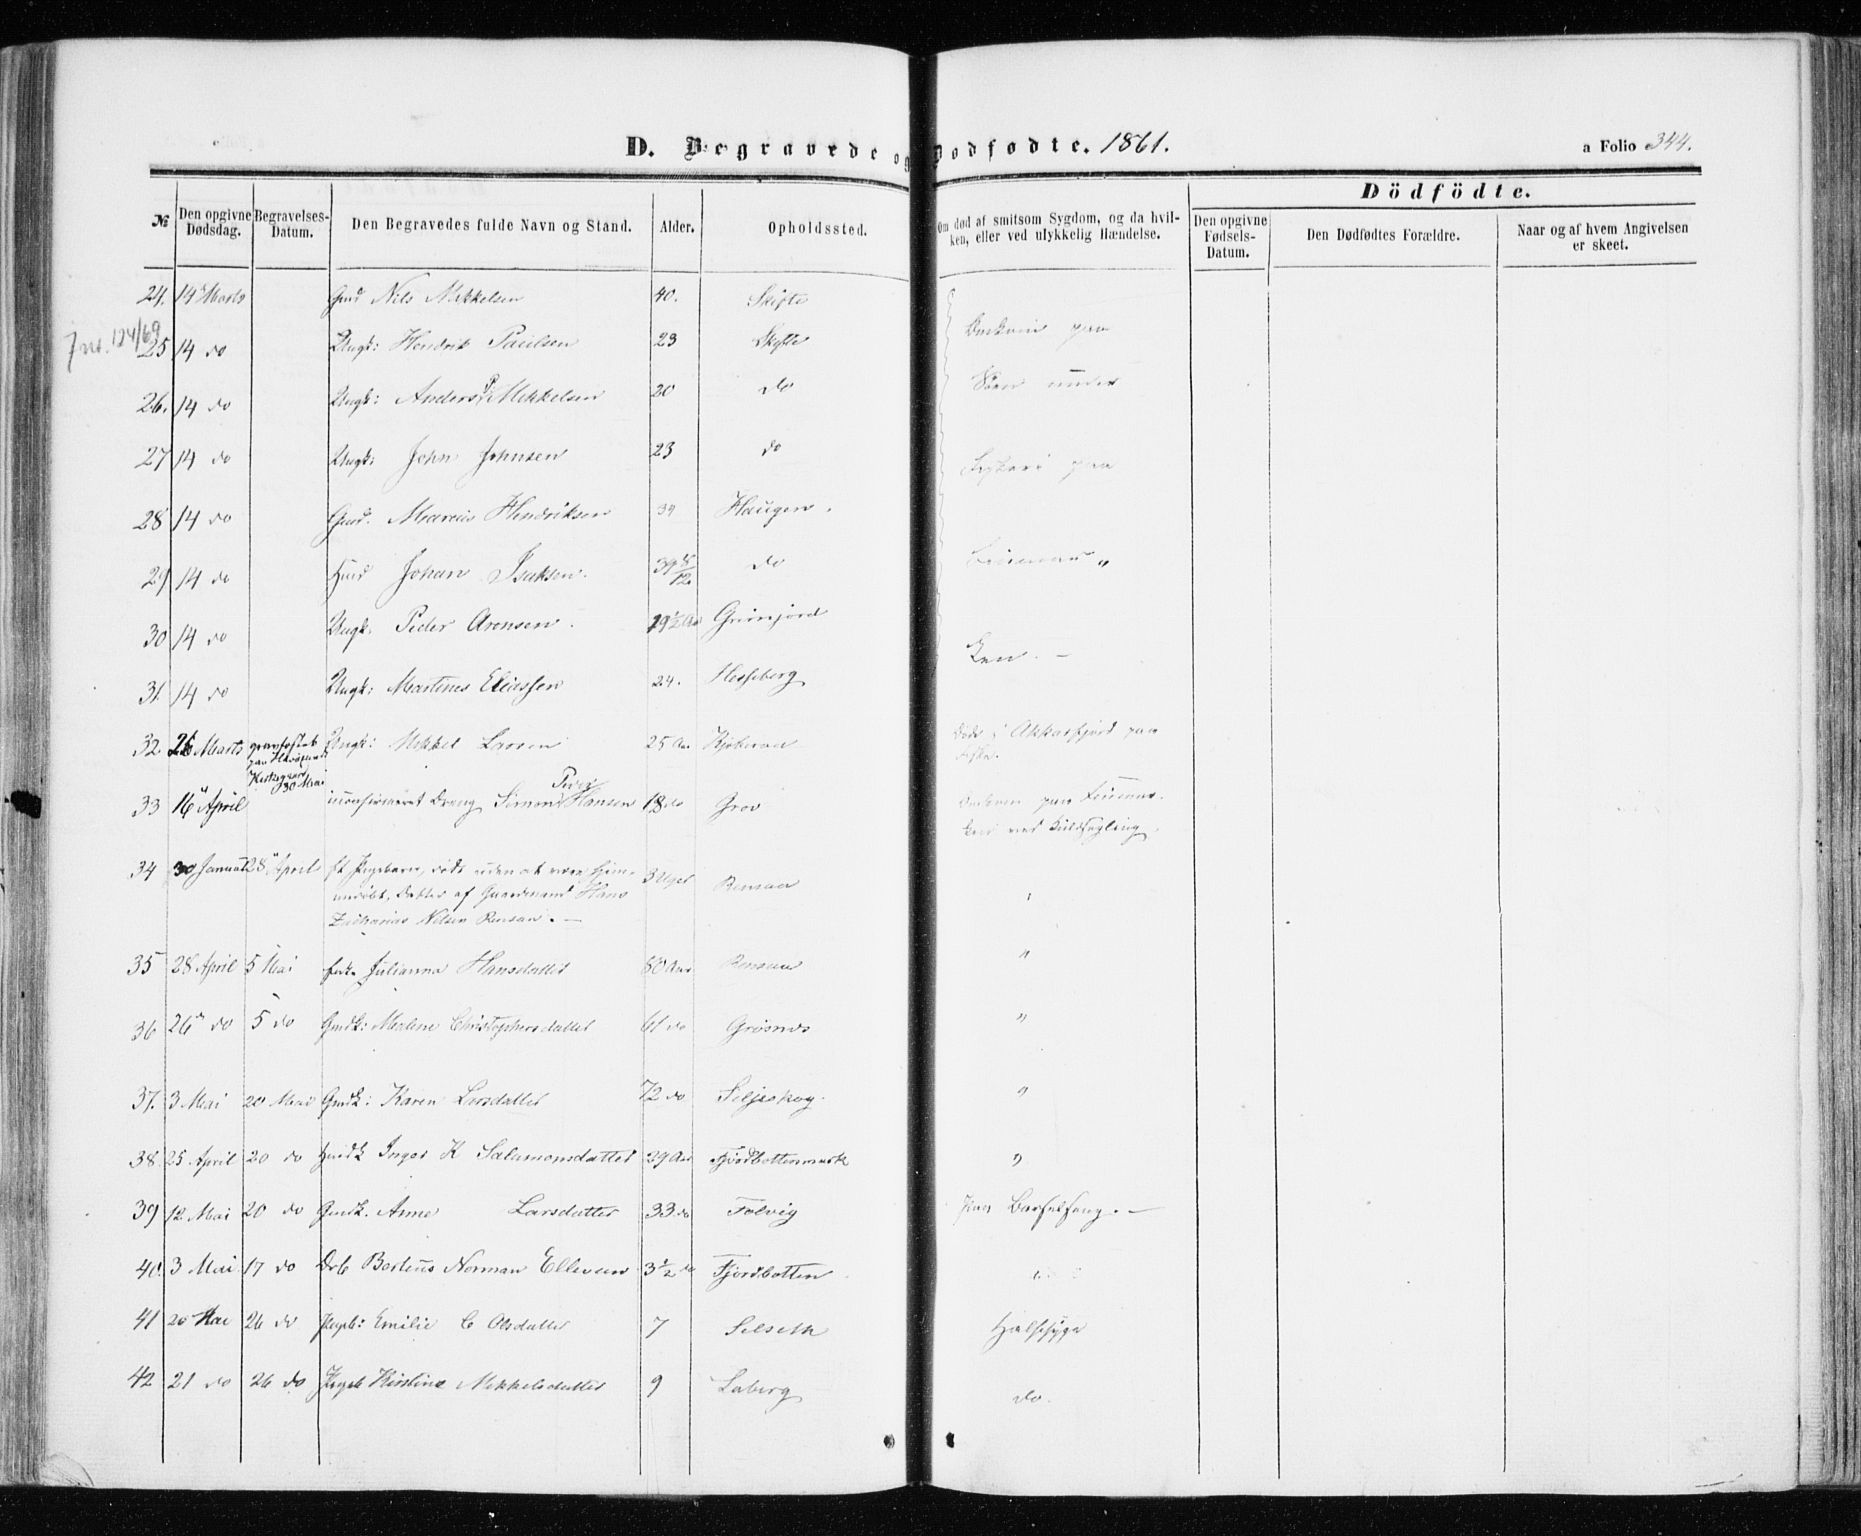 D. Begravede og Dødfødte. 1861.
a Folio 344.
Dödfödte.
№ Den opgivne Dødsdag. Begravelses-Datum. Den Begravedes fulde Navn og Stand. Alder. Opholdssted. Om død af smitsom Sygdom, og da hvilken, eller ved ulykkelig Hændelse. Den opgivne Fødsels-Datum. Den Dødfødtes Forældre. Naar og af hvem Angivelsen er skeet.
Jnr. 124/69
24. 14 Marts Gmd Nils Mikkelsen 40. Skifte
25 14 do Ungk: Hendrik Paulsen 23 Skifte Omkom paa
26. 14 do Ungk: Anders P. Mikkelsen 20 do Søen under
27 14 do Ungk: John Johnsen 23 do Fiskeri paa
28 14 do Gmd. Marius Hendriksen 34 Haugen.
29 14 do Huusmd Johan Isaksen. 39 8/12 do Finmar„
30 14 do Ungk. Peder Arensen. 19½ Aar Grimjord ken. —
31. 14 do Ungk: Martines Eliassen 24. Hesseberg
32 26 Marts gravfæstet paa Havøsund Kirkegaard 30 Mai Ungk: Mikkel Larsen 25 Aar Døde i Akkarfjord paa Fiske.
33 16 April uconfirmeret Dreng Simon Peder Hansen 18 do Grov Omkom paa Finmarken ved Kuldseyling.
34 30 Januar 28 April et Pigebarn, døde uden at være hjemmedøbt, Datter af Gaardmand Hans
Zacharias Nilsen Rensaa. — 3 Uger Rensaa „
35 28 April 5 Mai Julianna Hansdatter 80 Aar Rensaa „
36 26 do 5 do Gmdk: Malene Christophersdatter 61 do Grøsnes „
37. 3 Mai 20 Mai Gmdk: Karen Larsdatter 72 do Seljeskog. „
38. 25 April 20 do Inger K Salamonsdatter 29 Aar Fjordbottenmark „
39 12 Mai 20 do Gmdk. Anne Larsdatter 33 do Tolvig paa Barselseng. —
40. 3 Mai 17 do Drb Berteus Norman Ellevsen 3½ do Fjordbotten „
41 20 Mai 26 do Pigeb: Emilie C Olsdatter 7 Selseth Halssyge
42 21 do 26 do Pigeb Kirstine Mikkelsdatter 9 Laberg do.